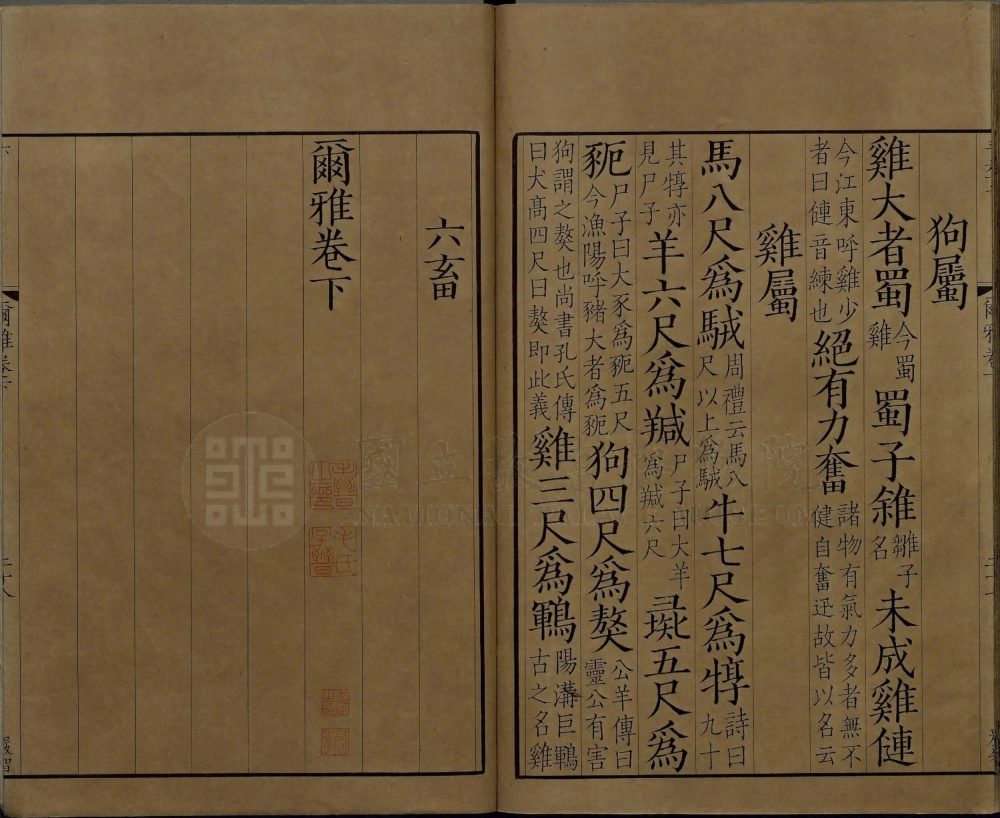 狗屬
雞大者蜀今蜀雞蜀子雓雛子名未成雞僆
今江東呼雞少者曰僆音練也絕有力奮諸物有氣力多者無不健自奮迅故皆以名云
雞屬
馬八尺爲駥周禮云馬八尺以上爲駥牛七尺爲犉詩曰九十
其犉亦見尸子羊六尺爲羬尸子曰大羊爲羬六尺彘五尺爲
豟尸子曰大豕爲豟五尺今漁陽呼豬大者爲豟狗四尺爲獒公羊傳曰靈公有害
狗謂之獒也尚書孔氏傳曰犬髙四尺曰獒即此義雞三尺爲鶤陽溝巨鶤古之名雞
六畜
爾雅卷下